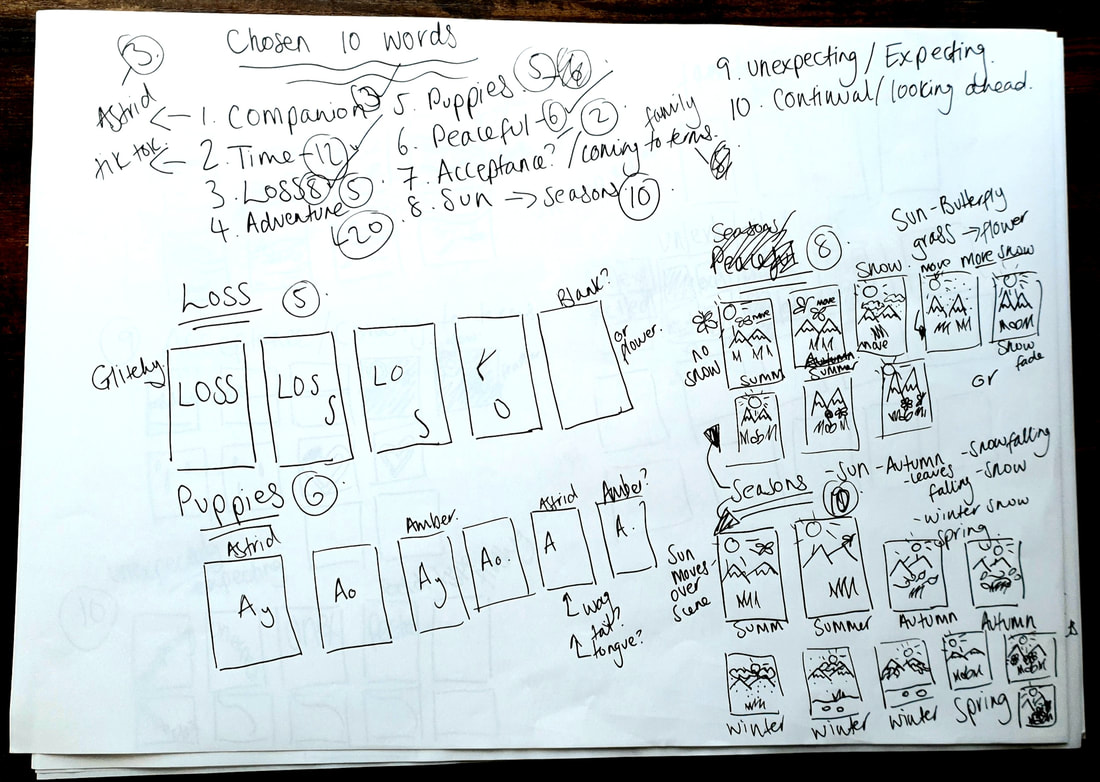 Chosen 10 words
3.
Astrid ← 1. Companion 3
tik tok. ← 2. Time - 12
3. LOSS 8 5
4. Adventure 20
5. Puppies 5
6. Peaceful - 6 2
7. Acceptance? / coming to terms. family
8. Sun → seasons 10
9. unexpecting / Expecting.
10. Continual / looking ahead.
LOSS 5.
Glitchy.
LOSS
LOS S
LO S
Blank?
or flower.
Puppies 6.
Astrid
Amber.
Astrid
Amber?
Ay
Ao
Ay
Ao.
A
A.
↑ wag tail?
↑ tongue?
Seasons/
Peaceful 8.
Sun - Butterfly
grass → flower
Snow. move more snow
no snow
move
move
move
Summ
Summer
Snow fade
or
Seasons
- Sun - Autumn - Snowfalling
- leaves falling - Snow
- winter snow
spring
Sun moves over scene
Summ
Summer
Autumn
Autumn
Winter
Winter
Winter
Spring